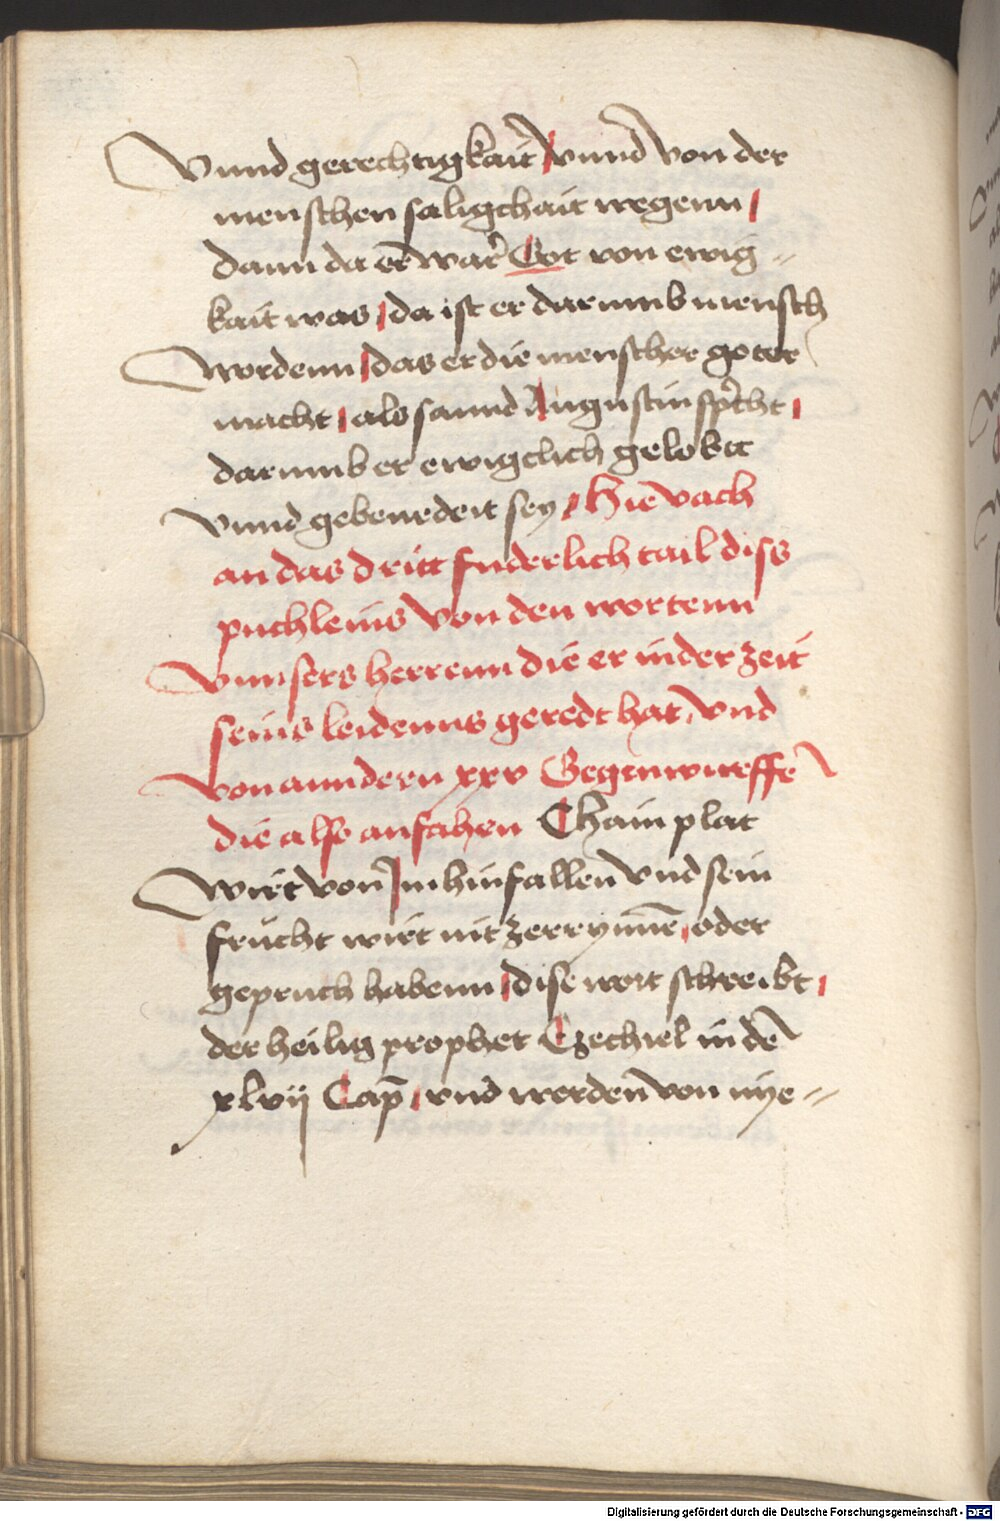 Vnnd gerechtigkait / vnnd von der
menschen saligchait wegenn /
dann da er war̉ Got von ewig=
kait was / da ist er darumb mensch
wordenn / das er die menscher goter
macht / als sannd Augustin sp̃cht /
darumb er ewigclich gelobtt
vnnd gebenedeit sey / Hie vach
an das dritt suderlich tail diss
puchleins von den wortenn
vnnsers herrenn die er in der zeit
seins leidenns geredt hat, vnd
von anndern xxv Gegenwurffẽ
die also anfahen Chain plat
wirt von Im hinfallen vnd sein
frucht wirt nit zerrynnẽ, oder
gepruch habenn / dise wort schreibt /
der heilig prophet Ezechiel in dẽ
xlvij Cap̃ / vnd werden von mye=
Digitalisierung gefördert durch die Deutsche Forschungsgemeinschaft - DFG